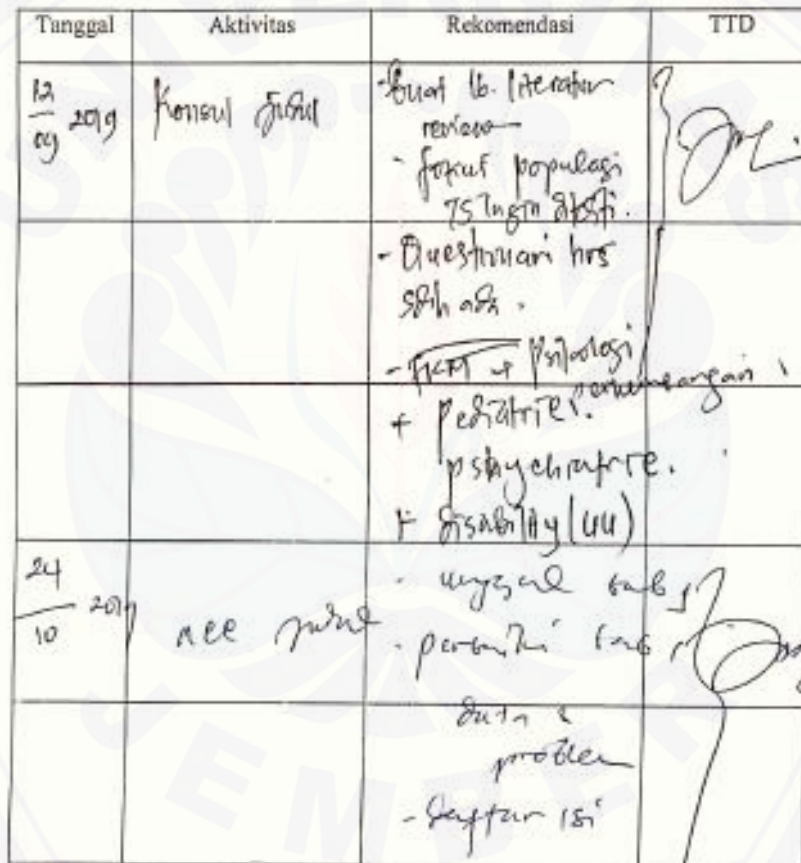 Tanggal Aktivitas Rekomendasi TTD
12/09 2019 Konsul Judul - Buat 16 literatur
review
- fokus populasi
yg ingin diteliti.
- Questionari hrs
sdh ada.
- FKM + Psikologi
perkembangan
+ Pediatric.
pshychiatric.
+ Disability (UU)
24/10 2019 acc judul - bab 1
- bab 1
data &
problem
- Daftar isi
UNIVERSITAS
JEMBER